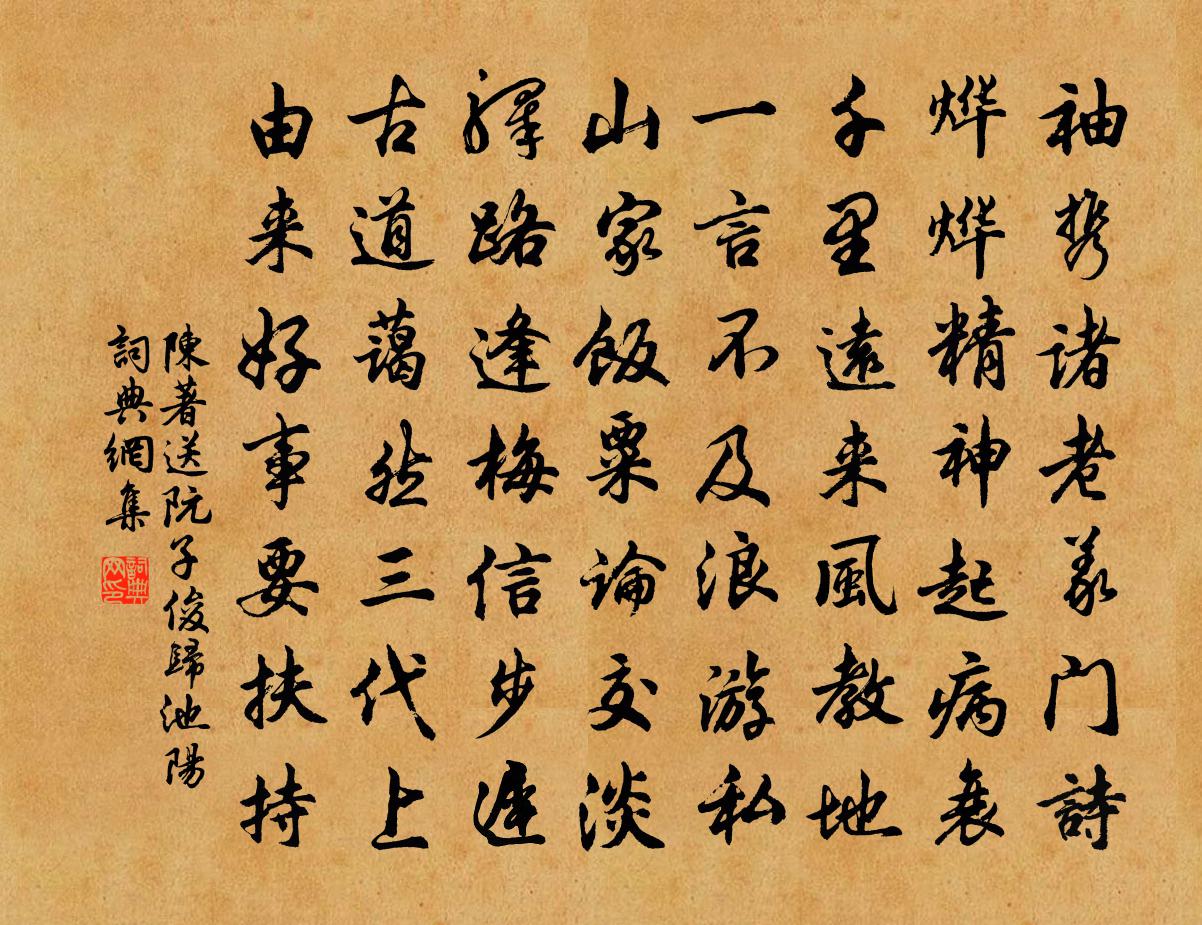 袖携諸老義门詩
烨烨精神起病衰
千里遠来風教地
一言不及浪游私
山家飯粟論交淡
驛路逢梅信步遲
古道藹然三代上
由来好事要扶持
陳著送阮子俊歸池陽
詞典網集
詞典网印